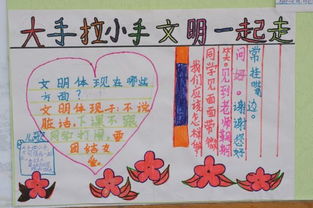 大手拉小手文明一起走
文明体现在哪些
方面？
文明体现于：不说
脏话、下课不跟
同学打闹、要
团结友
爱
我们应该怎样做
同学见面面带微
笑。见到老师鞠躬
问好。谢谢您好
常挂嘴边。